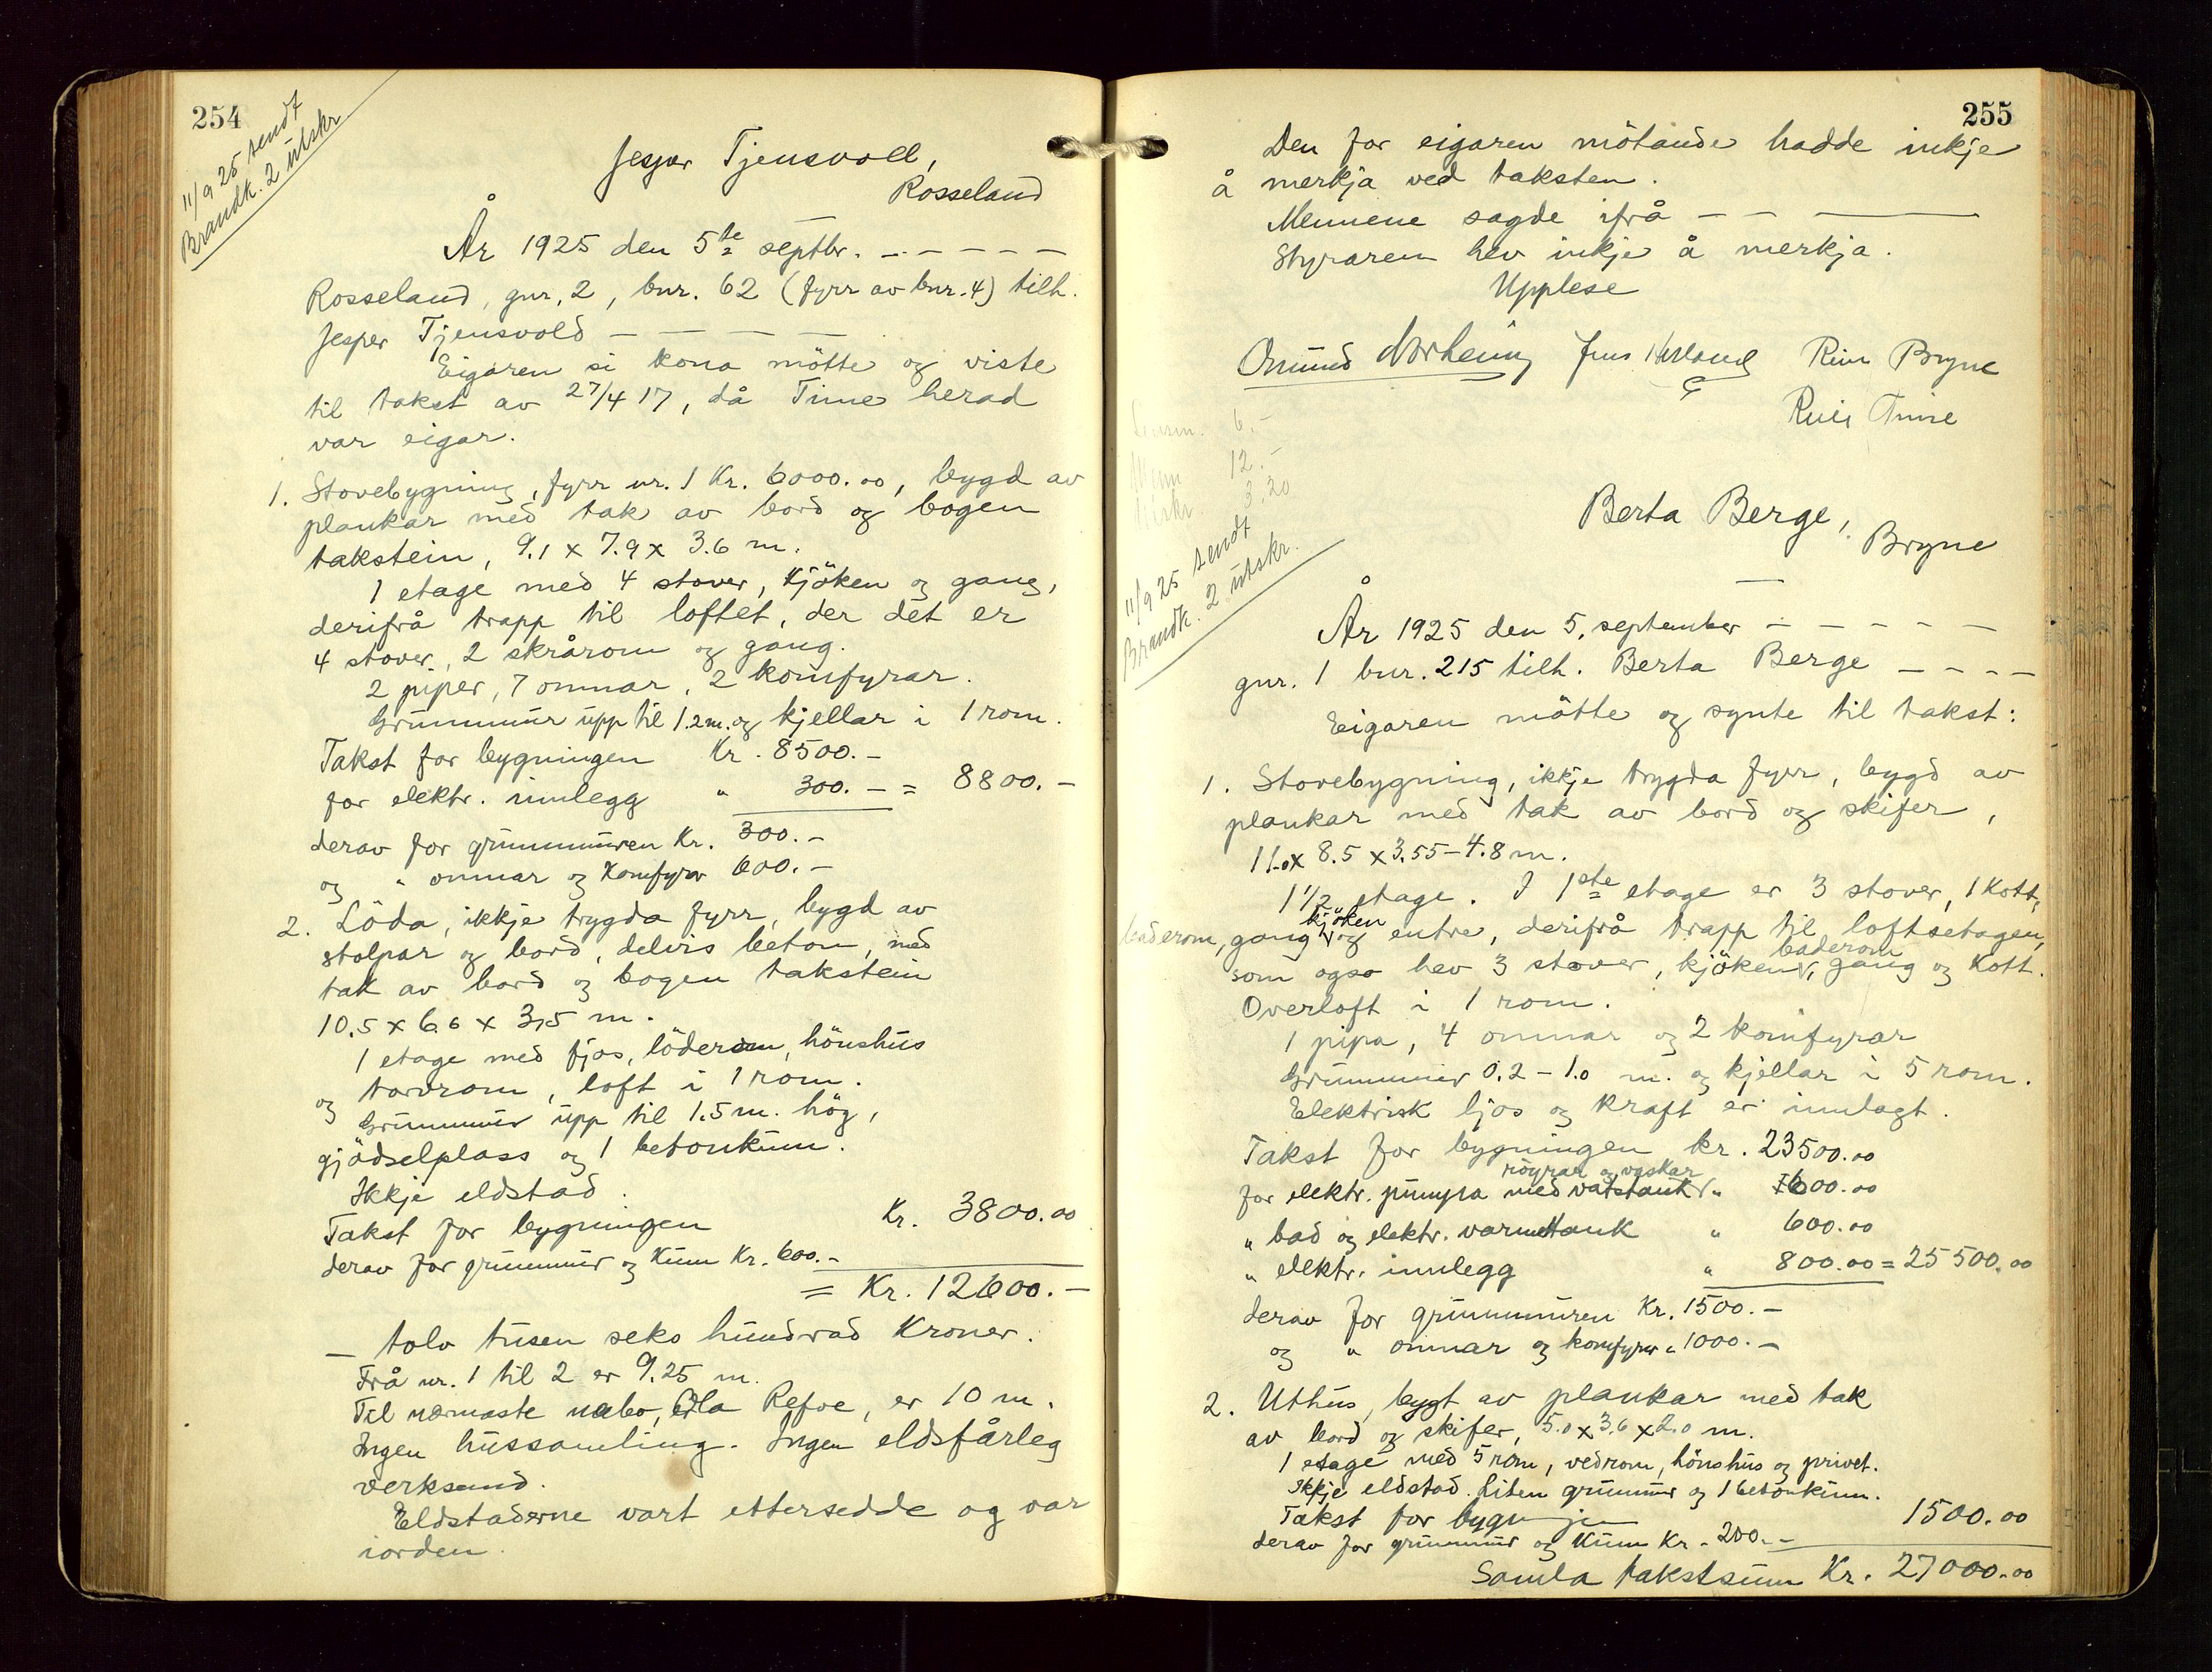 254
11/9 25 sendt
Brandk. 2 utskr.
Jesper Tjensvoll,
Rosseland
År 1925 den 5te septbr. - - - - -
Rosseland, gnr. 2, bnr. 62 (fyrr av bnr. 4) tilh.
Jesper Tjensvold - - - -
Eigaren si kona mötte og viste
til takst av 27/4 17, då Time herad
var eigar.
1. Stovebygning, fyrr nr. 1 Kr. 6000.00, bygd av
plankar med tak av bord og bogen
takstein, 9.1 x 7.9 x 3.6 m.
1 etage med 4 stover, kjöken og gang,
derifrå trapp til loftet, der det er
4 stover, 2 skrårom og gang.
2 piper, 7 omnar, 2 komfyrar.
Grunnmur upp til 1.2 m. og kjellar i 1 rom.
Takst for bygningen Kr. 8500.-
for elektr. innlegg " 300.- = 8800.-
derav for grunnmuren Kr. 300.-
og " omnar og komfyrar 600.-
2. Löda, ikkje trygda fyrr, bygd av
stolpar og bord, delvis beton, med
tak av bord og bogen takstein
10.5 x 6.6 x 3,5 m.
1 etage med fjos, löderom, hönshus
og torvrom, loft i 1 rom.
Grunnmur upp til 1.5 m. hög,
gjödselplass og 1 betonkum.
Ikkje eldstad.
Takst for bygningen Kr. 3800.00
derav for grunnmur og kum Kr. 600.-
= Kr. 12600.-
- tolv tusen seks hundrad Kroner.
Frå nr. 1 til 2 er 9.25 m.
Til nærmaste nabo, Ola Refve, er 10 m.
Ingen hussamling. Ingen eldsfårleg
verksemd.
Eldstaderne vart ettersedde og var
iorden.
255
Den for eigaren mötande hadde inkje
å merkja ved taksten.
Mennene sagde ifrå - - -
Styraren hev inkje å merkja.
Upplese
Omund Norheim Jens Herland Rein Bryne
Time
6.-
12.-
3.20
11/9 25 sendt
Brandk. 2 utskr.
Berta Berge,
Bryne
År 1925 den 5. september - - - - -
gnr. 1 bnr. 215 tilh. Berta Berge - - - -
Eigaren mötte og synte til takst:
1. Stovebygning, ikkje trygda fyrr, bygd av
plankar med tak av bord og skifer,
11.0 x 8.5 x 3.55-4.8 m.
1 1/2 etage. I 1ste etage er 3 stover, 1 kott,
baderom, gang kjöken og entre, derifrå trapp til loftsetagen,
som ogso hev 3 stover, kjöken, baderom gang og kott.
Overloft i 1 rom.
1 pipa, 4 omnar og 2 komfyrar
Grunnmur 0.2 - 1.0 m. og kjellar i 5 rom.
Elektrisk ljos og kraft er innlagt.
Takst for bygningen kr. 23500.00
for elektr. pumpa med vatstank röyrar og vaskar " 600.00
" bad og elektr. varmetank " 600.00
" elektr. innlegg " 800.00 = 25500.00
derav for grunnmuren Kr. 1500.-
og " omnar og komfyrar " 1000.-
2. Uthus, bygt av plankar med tak
av bord og skifer, 5.0 x 3.6 x 2.0 m.
1 etage med 5 rom, vedrom, hönshus og privet.
Ikkje eldstad. Liten grunnmur og 1 betonkum.
Takst for bygningen 1500.00
derav for grunnmur og kum Kr. 200.-
Samla takstsum Kr. 27000.00